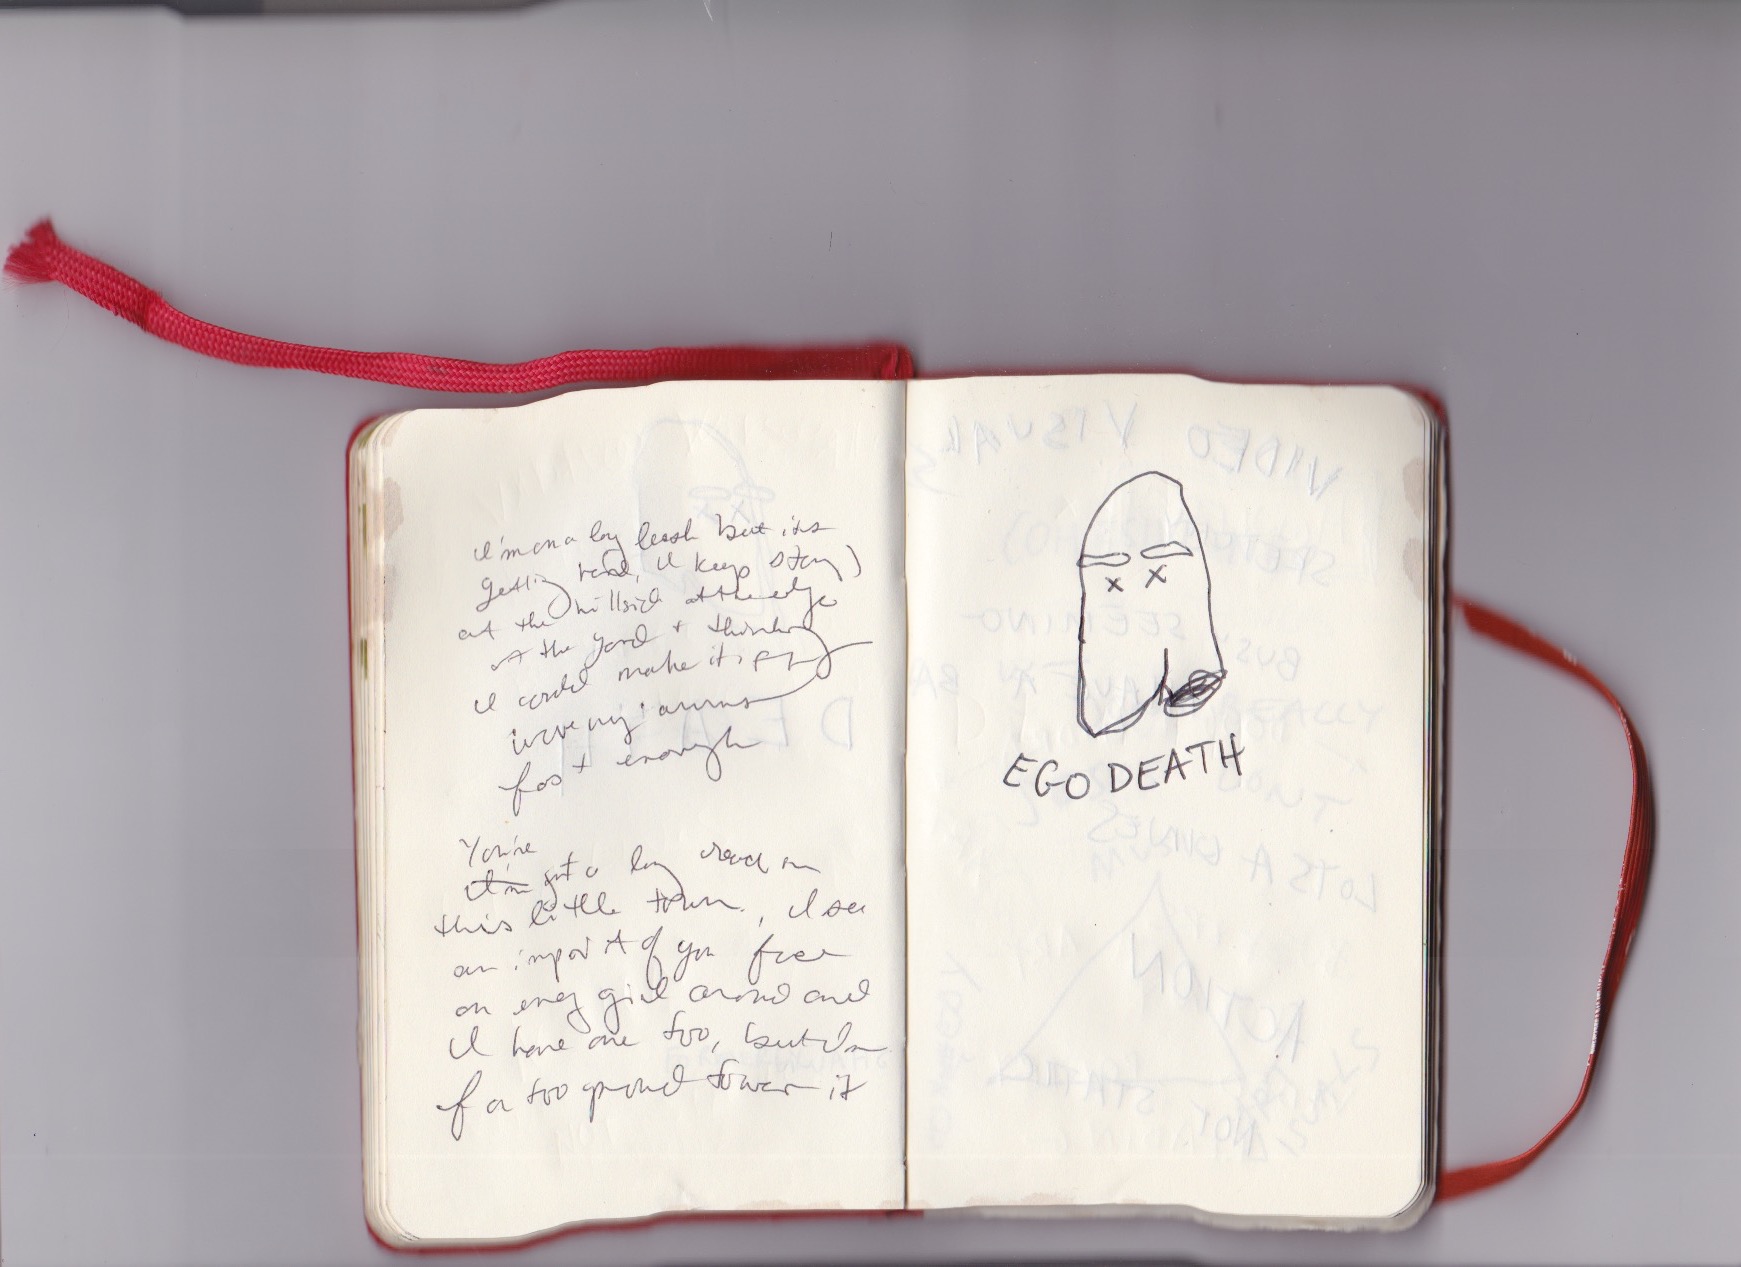 I'm on a long leash but its
getting hard, I keep staring
at the hillside at the edge
of the yard + thinking
I could make it if
wave my arms
fast enough
You're
I'm got a long road in
this little town, I see
an imprint of your face
on every girl around and
I have one too, but I'm
far too proud to wear it
EGO DEATH